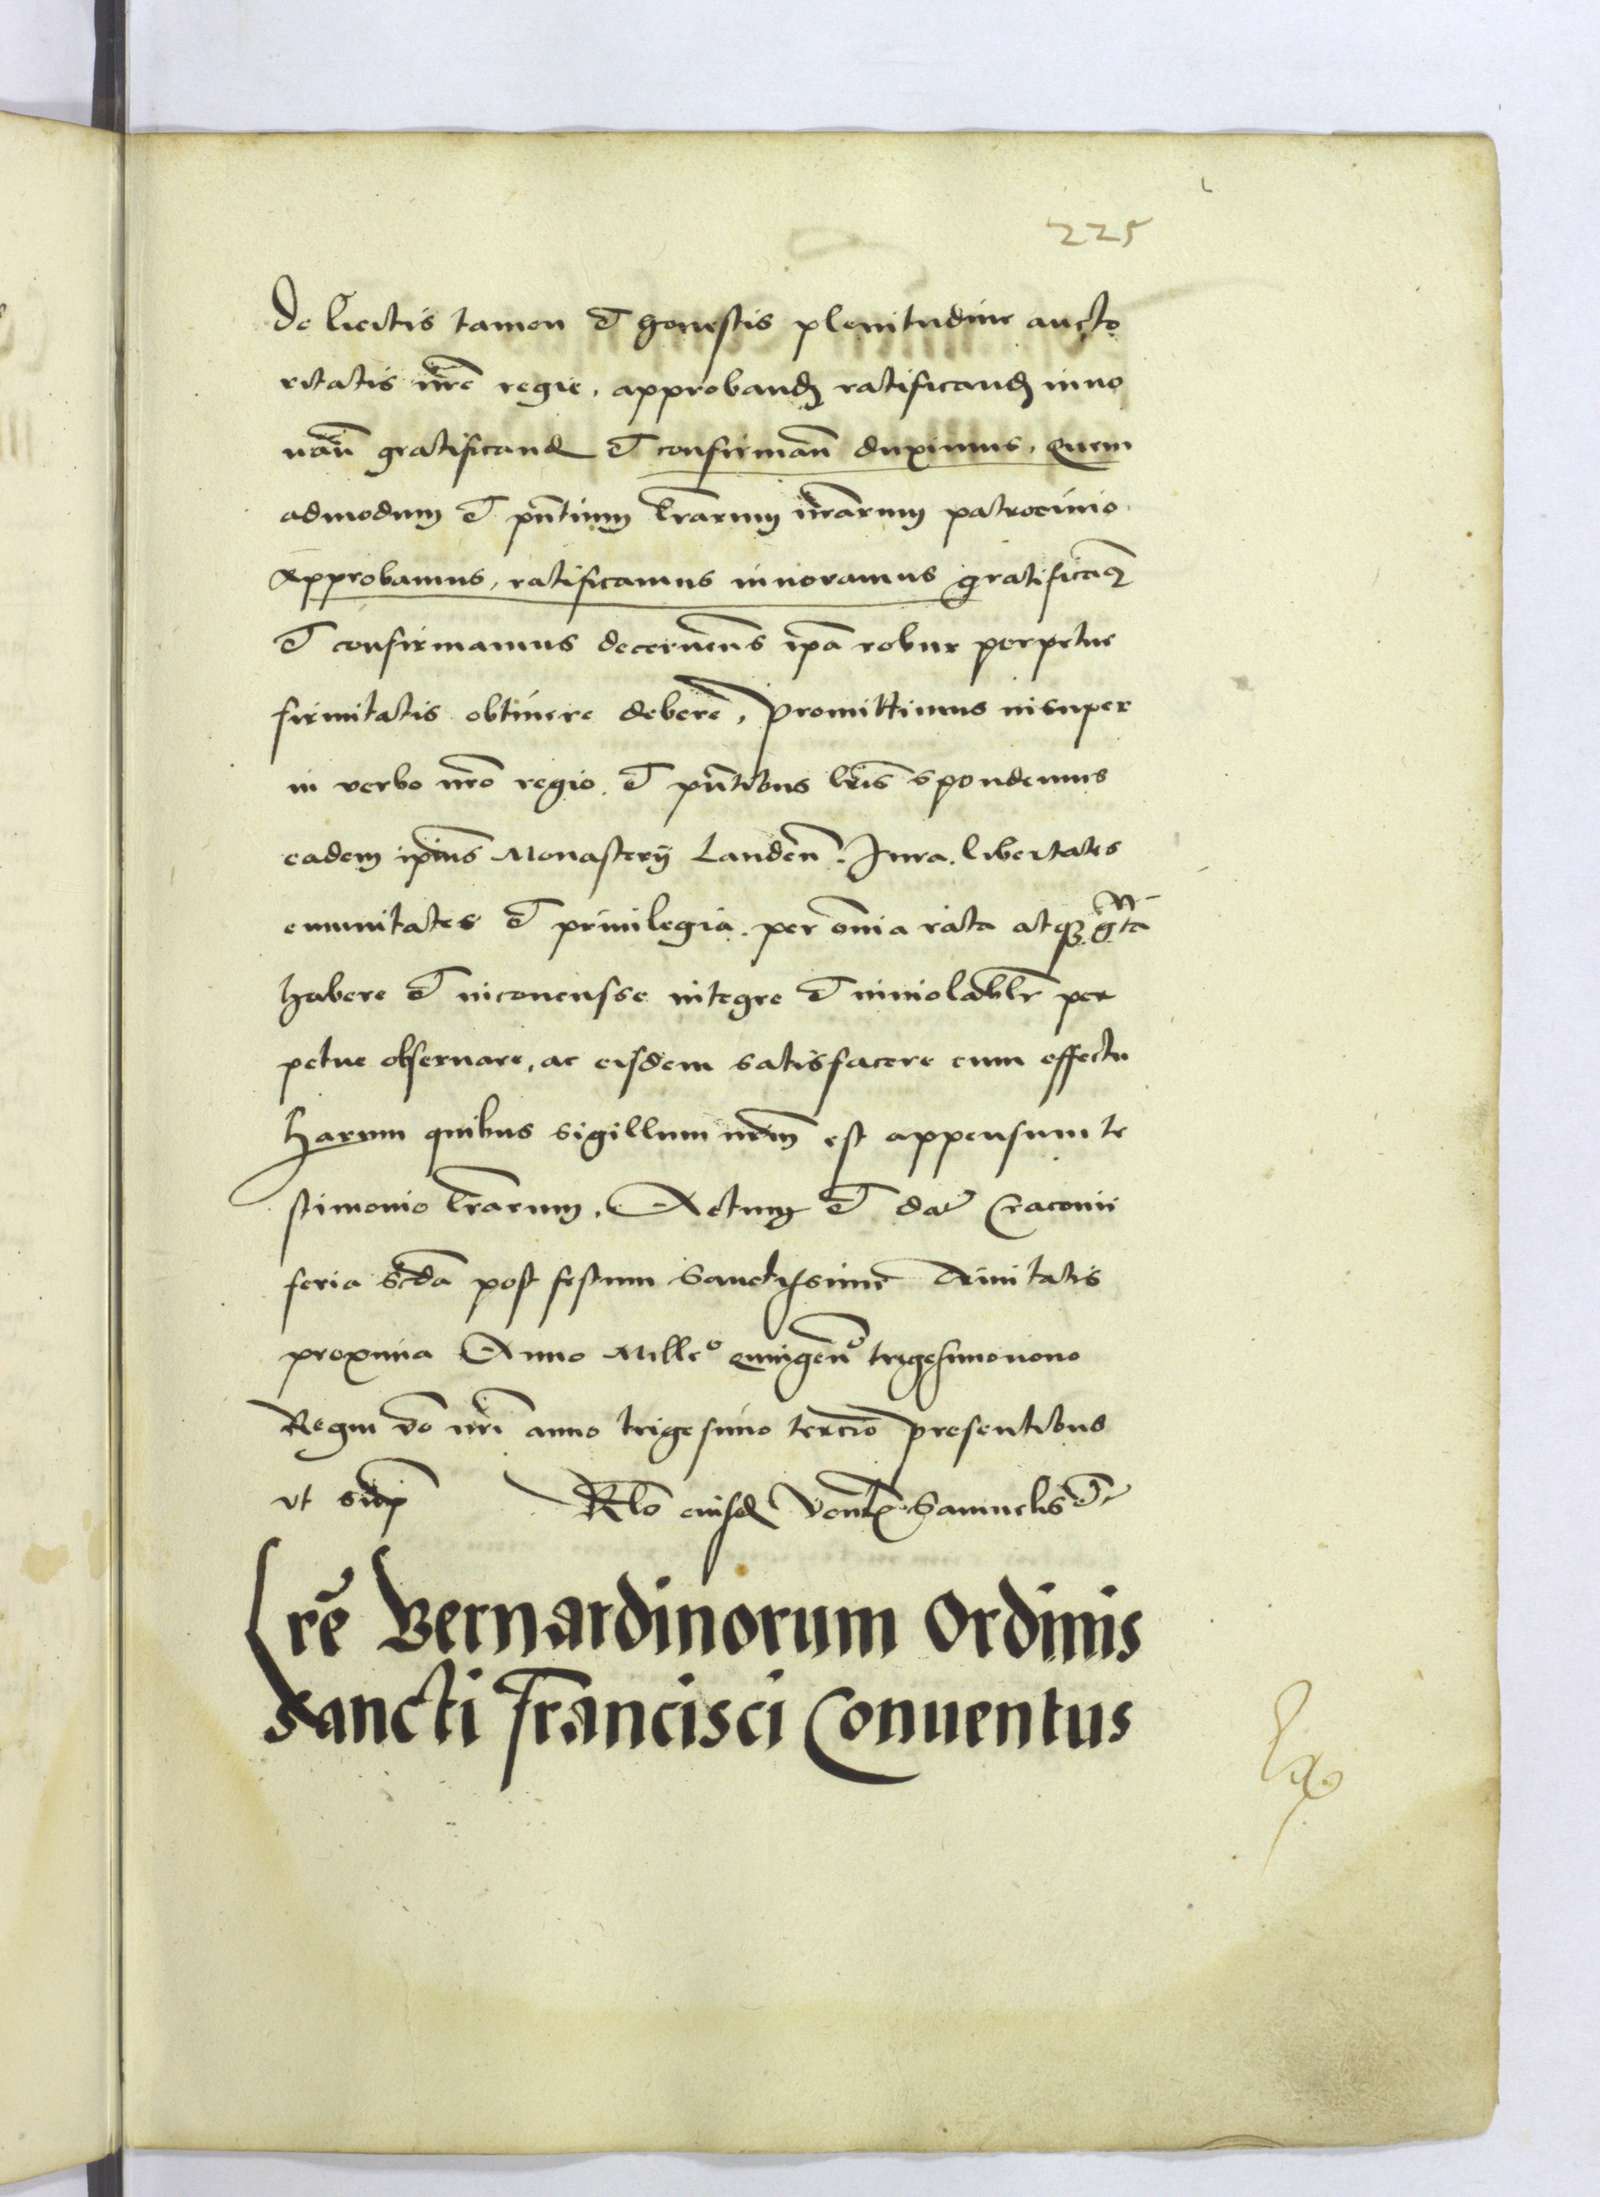 225
de licitis tamen et honestis plenitudine aucto
ritatis nr̄e regie. approband ratificand inno
uan̄ gratificand et confirman̄ duximus. Quem
admodum et pn̄tium lr̄arum nr̄arum patrocinio
Approbamus, ratificamus innouamus gratificam9
et confirmamus decernen̄s ip̄a robur perpetue
firmitatis obtinere debere, Promittimus insuper
in verbo nr̄o regio et pn̄tibus lr̄is spondemus
eadem ip̄ius Monasterij Landen̄. Jura. libertates
emunitates et priuilegia. per om̄ia rata atq3 gr̄ta
habere et inconcusse integre et inuiolablr̄ per
petue obseruare, ac eisdem satisfacere cum effectu
Harum quibus sigillum nr̄m est appensum te
stimonio lr̄arum. Actum et dat Cracouij
feria scd̄a post festum Sanctissime Trinitatis
proxima Anno Mille⁰ quingen̄⁰ trigesimonono
Regni vo nr̄i anno trigesimo tercio presentibus
vt sup̄
Rlō eiusd Ven̄lis Samuelis etc
Lr̄e Bernardinorum Ordinis
Sancti Francisci Conuentus